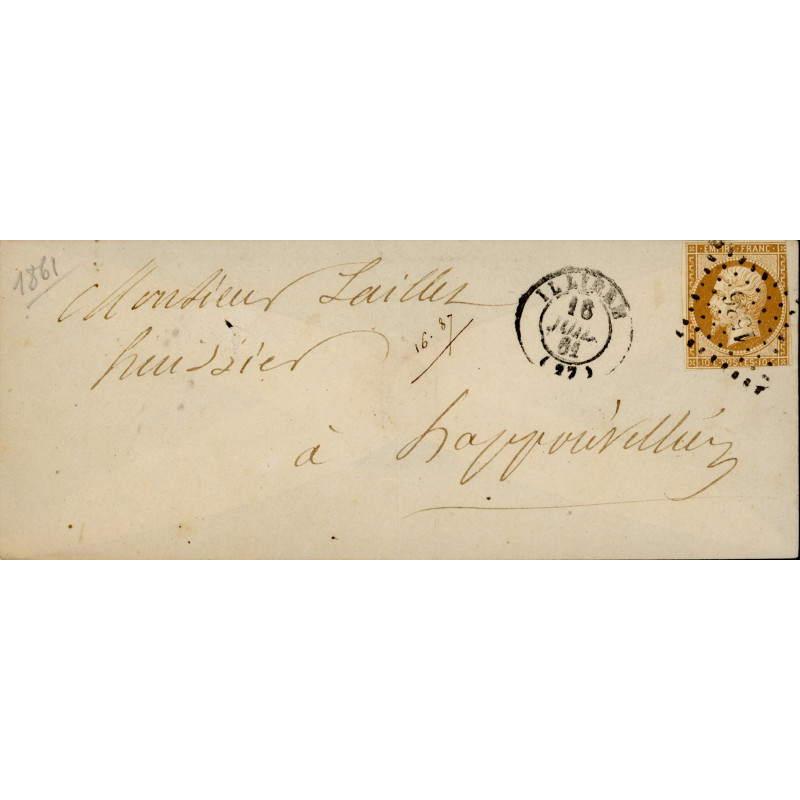 1861
Monsieur Laillet
huissier
à happouvillier
16. 87
ILLIERS
18
JUIL.
61
(27)
EMPIRE FRANC
1535
10 c POSTES 10 c